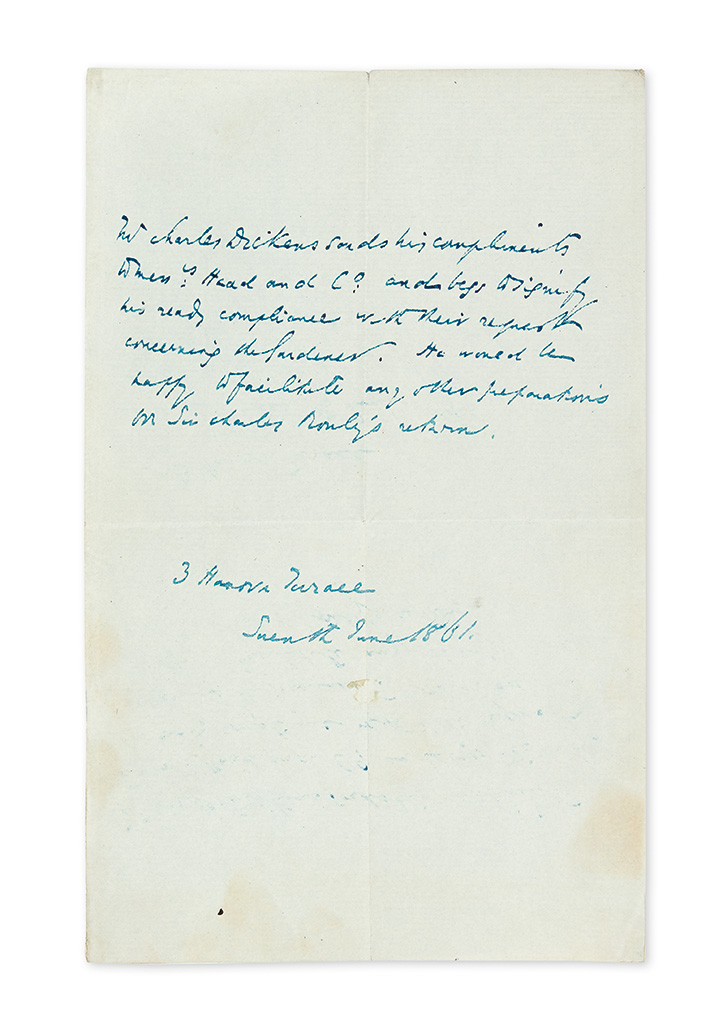 Mr Charles Dickens sends his compliments
to Mess.rs Head and Co. and begs to signify
his ready compliance with their request
concerning the Gardener. He would be
happy to facilitate any other preparations
for Sir Charles Rowley's return.
3 Hanover Terrace
Seventh June 1861.